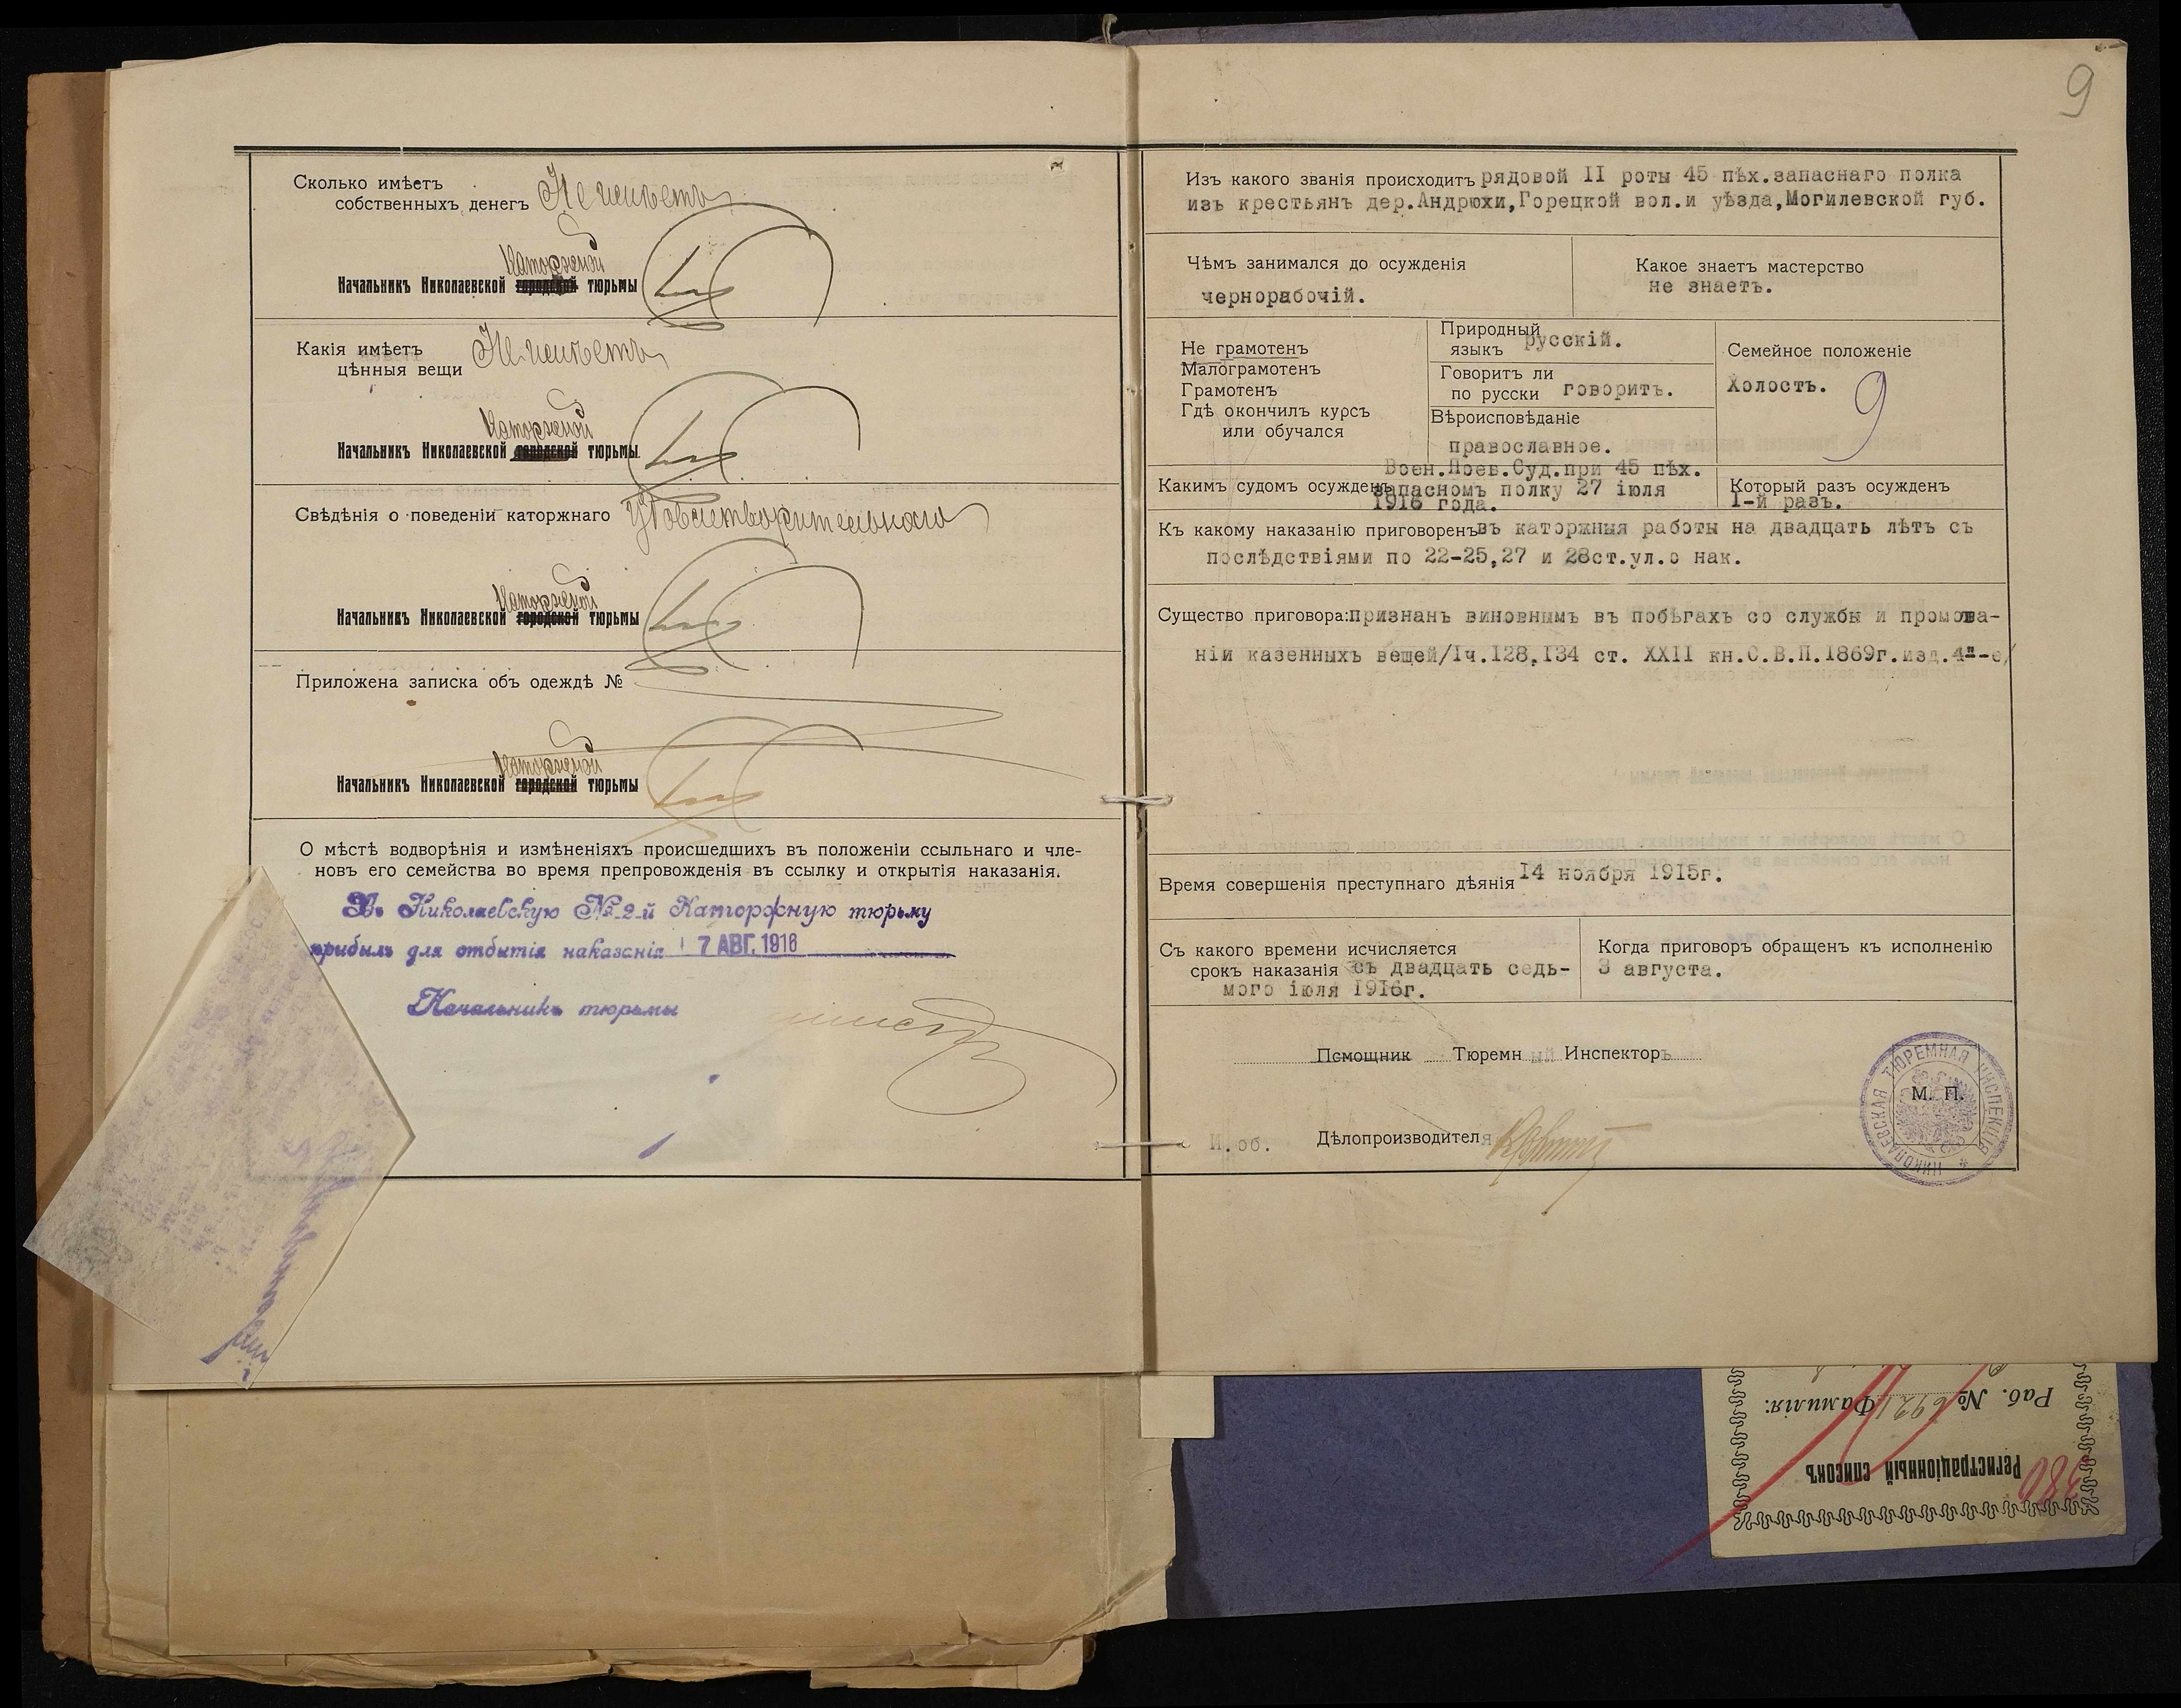 Сколько имѣетъ
собственныхъ денегъ Не имѣетъ
Каторжной
Начальникъ Николаевской городской тюрьмы
Какія имѣетъ
цѣнныя вещи Не имѣетъ
Каторжной
Начальникъ Николаевской городской тюрьмы
Свѣдѣнія о поведеніи каторжнаго Удовлетворительнаго
Каторжной
Начальникъ Николаевской городской тюрьмы
Приложена записка объ одеждѣ №
Каторжной
Начальникъ Николаевской городской тюрьмы
О мѣстѣ водворѣнія и измѣненіяхъ происшедшихъ въ положеніи ссыльнаго и чле-
новъ его семейства во время препровожденія въ ссылку и открытія наказанія.
Въ Николаевскую № 2-й Каторжную тюрьму
прибылъ для отбытія наказанія 17 АВГ. 1916
Начальникъ тюрьмы
9
Изъ какого званія происходитъ рядовой II роты 45 пѣх.запаснаго полка
изъ крестьянъ дер.Андрюхи,Горецкой вол.и уѣзда,Могилевской губ.
Чѣмъ занимался до осужденія
чернорабочій.
Какое знаетъ мастерство
не знаетъ.
Не грамотенъ
Малограмотенъ
Грамотенъ
Гдѣ окончилъ курсъ
или обучался
Природный
языкъ русскій.
Говоритъ ли
по русски говоритъ.
Вѣроисповѣданіе
православное.
Семейное положеніе
Холостъ.
9
Воен.Полев.Суд.при 45 пѣх.
Какимъ судомъ осужденъ запасномъ полку 27 іюля
1916 года.
Который разъ осужденъ
1-й разъ.
Къ какому наказанію приговоренъ въ каторжныя работы на двадцать лѣтъ съ
послѣдствіями по 22-25,27 и 28ст.ул.о нак.
Существо приговора: признанъ виновнымъ въ побѣгахъ со службы и промота-
ніи казенныхъ вещей/Iч.I28,I34 ст. XXII кн.С.В.П.1869г.изд.4-е/
Время совершенія преступнаго дѣянія 14 ноября 1915г.
Съ какого времени исчисляется
срокъ наказанія съ двадцать седь-
мого іюля 1916г.
Когда приговоръ обращенъ къ исполненію
3 августа.
Помощникъ Тюремный Инспекторъ
М. П.
НИКОЛАЕВСКАЯ ТЮРЕМНАЯ ИНСПЕКЦІЯ
И.об. Дѣлопроизводителя
380
Регистраціонный списокъ
Раб. № 6921 Фамилія: